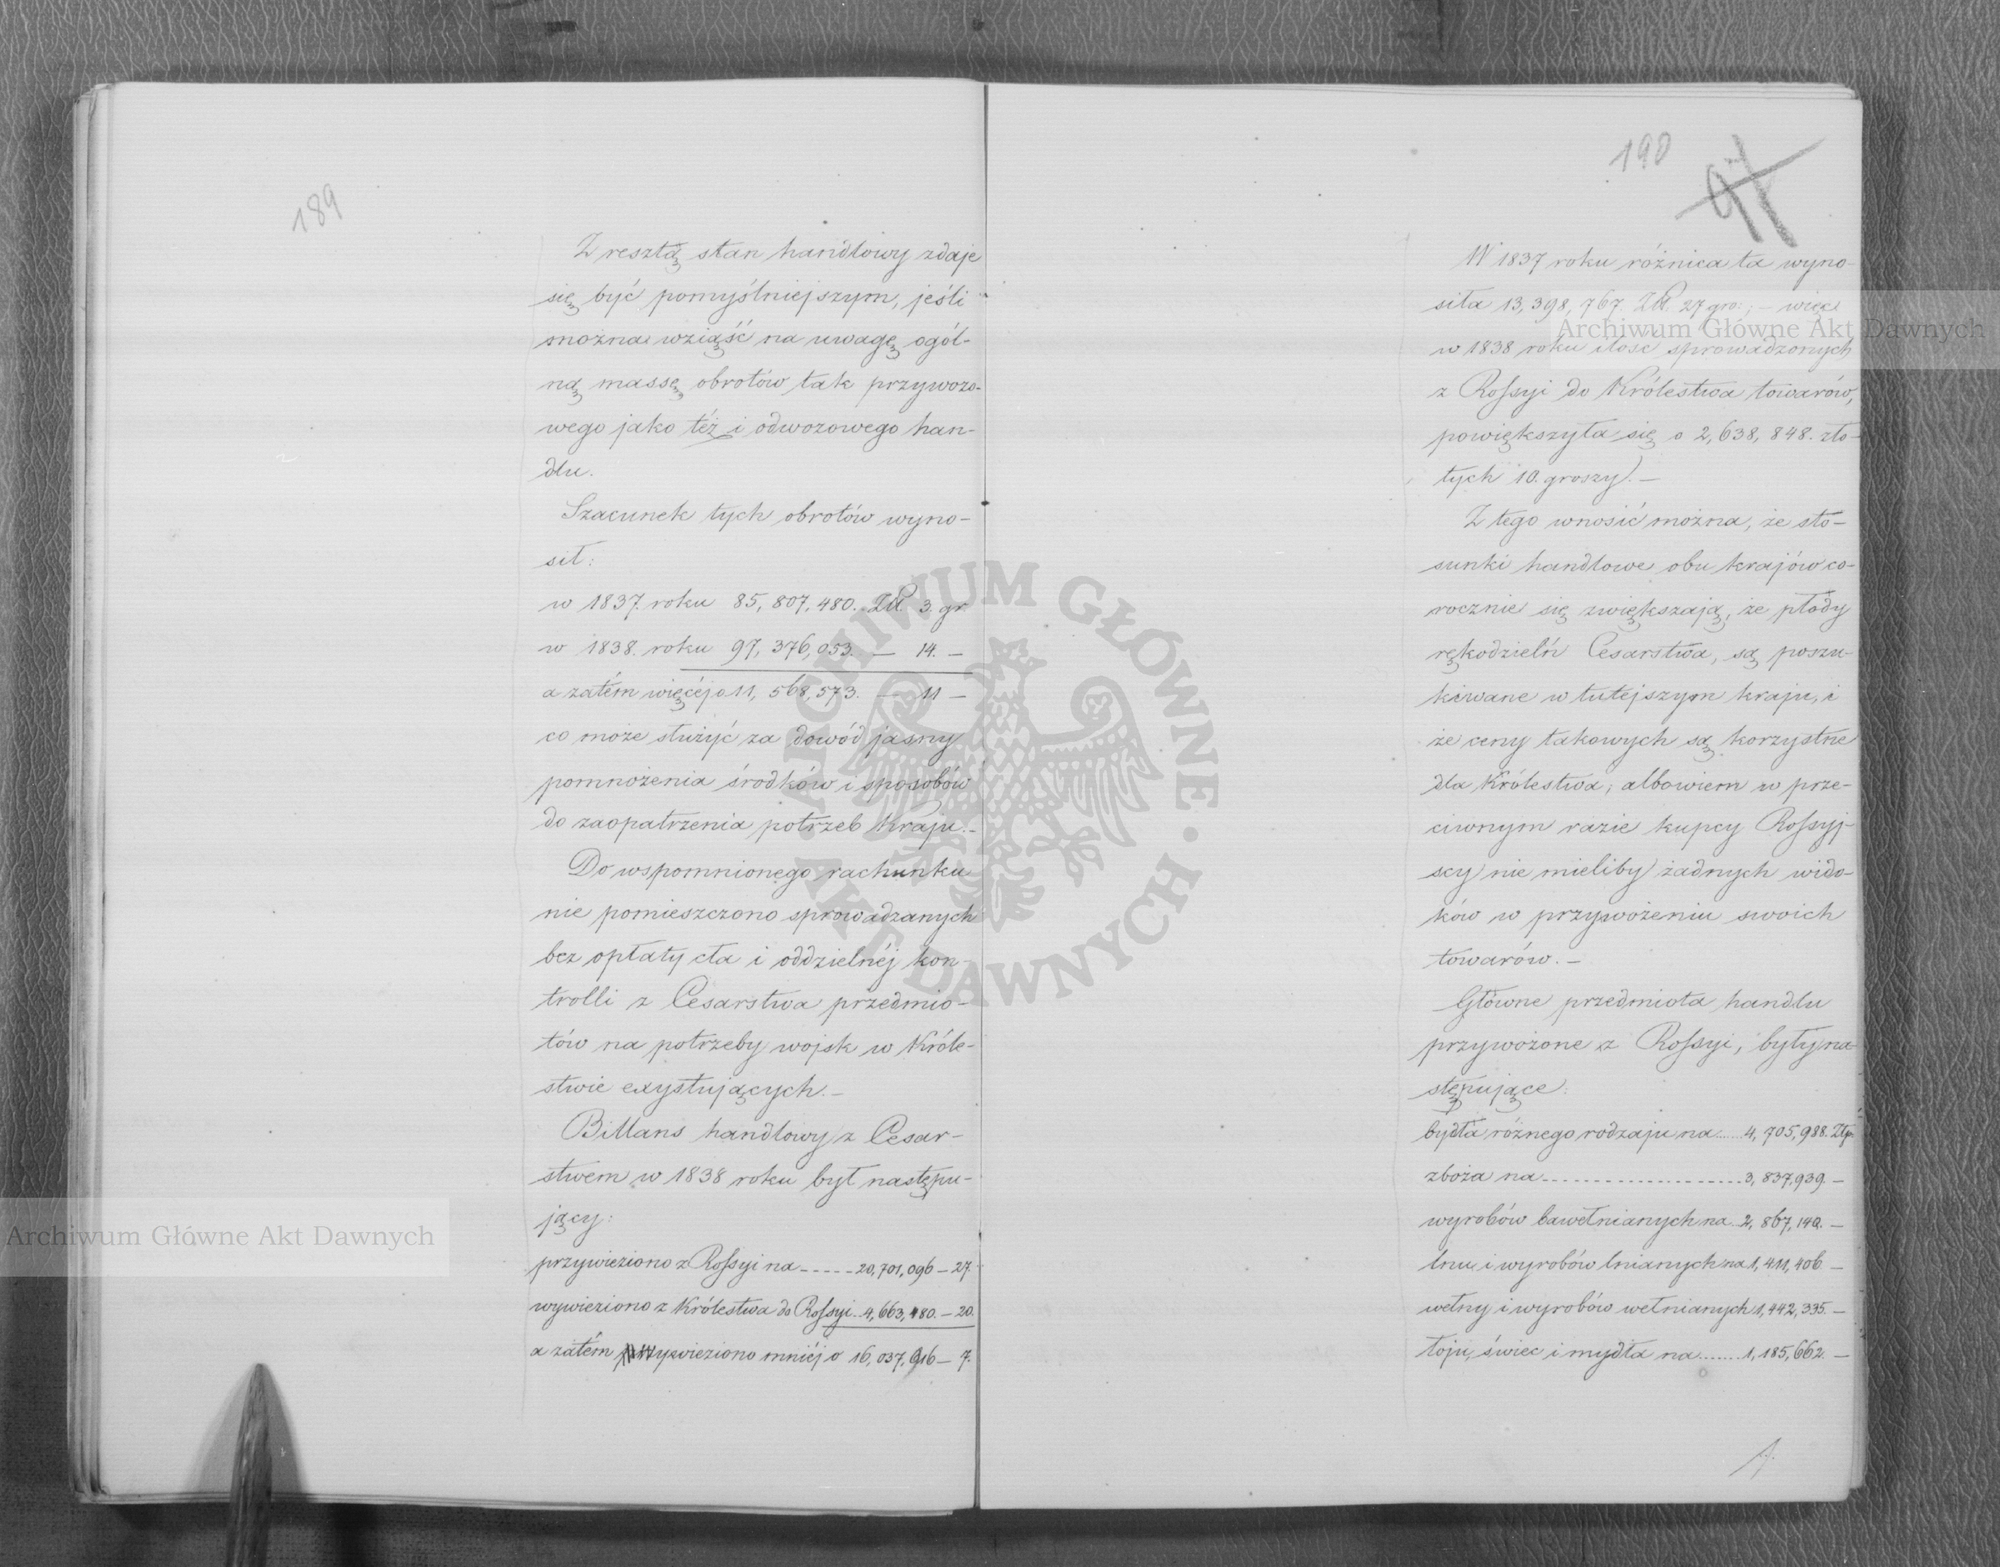 189
Z resztą stan handlowy zdaje
się być pomyślniejszym, jeśli
można wziąść na uwagę ogól-
ną massę obrotów tak przywozo-
wego jako téż i odwozowego han-
dlu.
Szacunek tych obrotów wyno-
sił:
w 1837. roku 85,807,480. Zł 3. gr
w 1838. roku 97,376,053. — 14. —
a zatém więcéj o 11,568,573. — 11 —
co może służyć za dowód jasny
pomnożenia środków i sposobów
do zaopatrzenia potrzeb Kraju.-
Do wspomnionego rachunku
nie pomieszczono sprowadzanych
bez opłaty cła i oddzielnéj kon-
trolli z Cesarstwa przedmio-
tów na potrzeby wojsk w Króle-
stwie exystujących.-
Billans handlowy z Cesar-
stwem w 1838 roku był następu-
jący:
przywieziono z Rossyi na ----- 20,701,096 - 27.
wywieziono z Królestwa do Rossyi.. 4,663,180. - 20.
a zatém wywieziono mniéj o 16,037,916 - 7.
190
W 1837 roku różnica ta wyno-
siła 13,398,767. Zł. 27 gro:; - więc
w 1838 roku ilość sprowadzonych
z Rossyi do Królestwa towarów,
powiększyła się o 2,638,848. zło-
tych 10. groszy). -
Z tego wnosić można, że sto-
sunki handlowe obu krajów co-
rocznie się zwiększają, że płody
rękodzielń Cesarstwa, są poszu-
kiwane w tutejszym kraju, i
że ceny takowych są korzystne
dla Królestwa; albowiem w prze-
ciwnym razie kupcy Rossyj-
scy nie mieliby żadnych wido-
ków w przywożeniu swoich
towarów. -
Główne przedmiota handlu
przywożone z Rossyi, były na-
stępujące:
bydła różnego rodzaju na ..... 4,705,988. Złp.
zboża na ........................ 3,837,939. -
wyrobów bawełnianych na .. 2,867,140. -
lnu i wyrobów lnianych na 1,411,406. -
wełny i wyrobów wełnianych 1,442,335. -
łoju, świec i mydła na ....... 1,185,662. -
Archiwum Główne Akt Dawnych
Archiwum Główne Akt Dawnych
ARCHIWUM GŁÓWNE AKT DAWNYCH